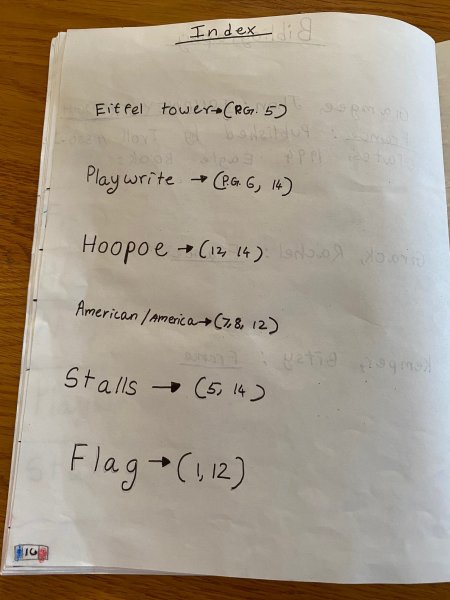 Index
Eiffel tower→(P.G. 5)
Playwrite →(P.G. 6, 14)
Hoopoe →(12, 14)
American/America→(7,8, 12)
Stalls → (5, 14)
Flag →(1,12)
16